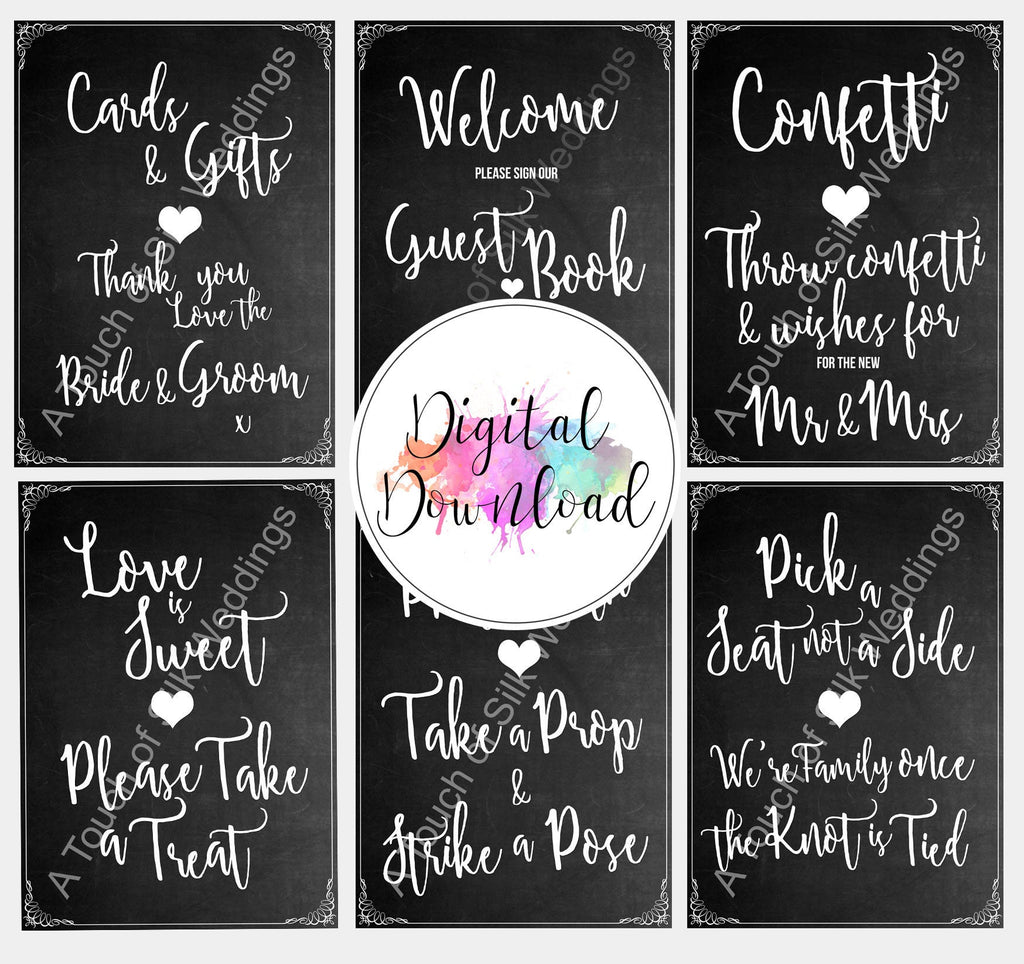 Cards
& Gifts
Thank you
Love the
Bride & Groom
x
A Touch of Silk Weddings
Welcome
PLEASE SIGN OUR
Guest Book
A Touch of Silk Weddings
Confetti
Throw confetti
& wishes for
FOR THE NEW
Mr & Mrs
A Touch of Silk Weddings
Digital
Download
Love
is
Sweet
Please Take
a Treat
A Touch of Silk Weddings
Take a Prop
&
Strike a Pose
A Touch of Silk Weddings
Pick a
Seat not a Side
We're Family once
the Knot is Tied
A Touch of Silk Weddings